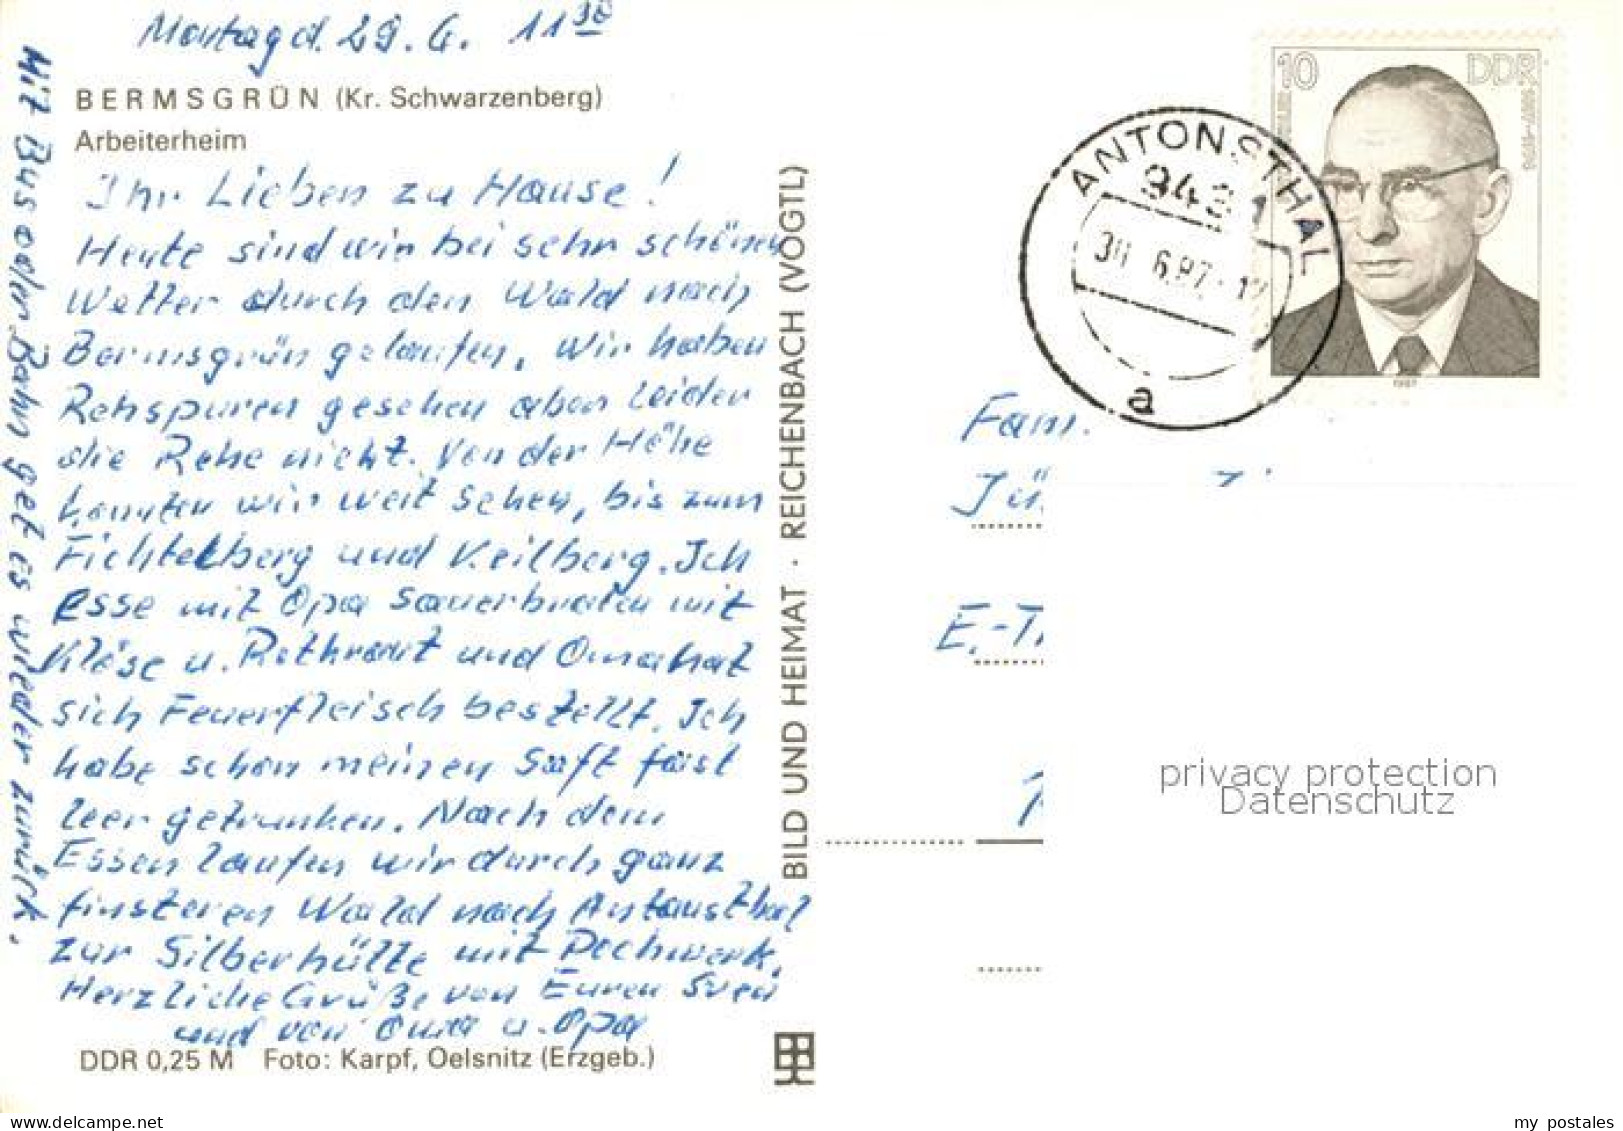 Montag d. 29. 6. 11³⁰
BERMSGRÜN (Kr. Schwarzenberg)
Arbeiterheim
Ihr Lieben zu Hause!
Heute sind wir bei sehr schönen
Wetter durch den Wald nach
Bermsgrün gelaufen. Wir haben
Rehspuren gesehen aber leider
die Rehe nicht. Von der Höhe
konnten wir weit sehen, bis zum
Fichtelberg und Keilberg. Ich
esse mit Opa Sauerbraten mit
Kläse u. Rothraut und Oma hat
sich Feuerfleisch bestellt. Ich
habe schon meinen Saft fast
leer getrunken. Nach dem
Essen laufen wir durch ganz
finsteren Wald nach Antonsthal
zur Silberhütte mit Pochwerk.
Herzliche Grüße von Euren Sven
und von Oma u. Opa
Mit Bus oder Bahn get es wieder zurück.
DDR 0,25 M Foto: Karpf, Oelsnitz (Erzgeb.)
BILD UND HEIMAT · REICHENBACH (VOGTL)
10 DDR
1987
ANTONSTHAL
9431
30. 6.87-12
a
Fam.
Jü
E.-T
privacy protection
Datenschutz
www.delcampe.net
my_postales